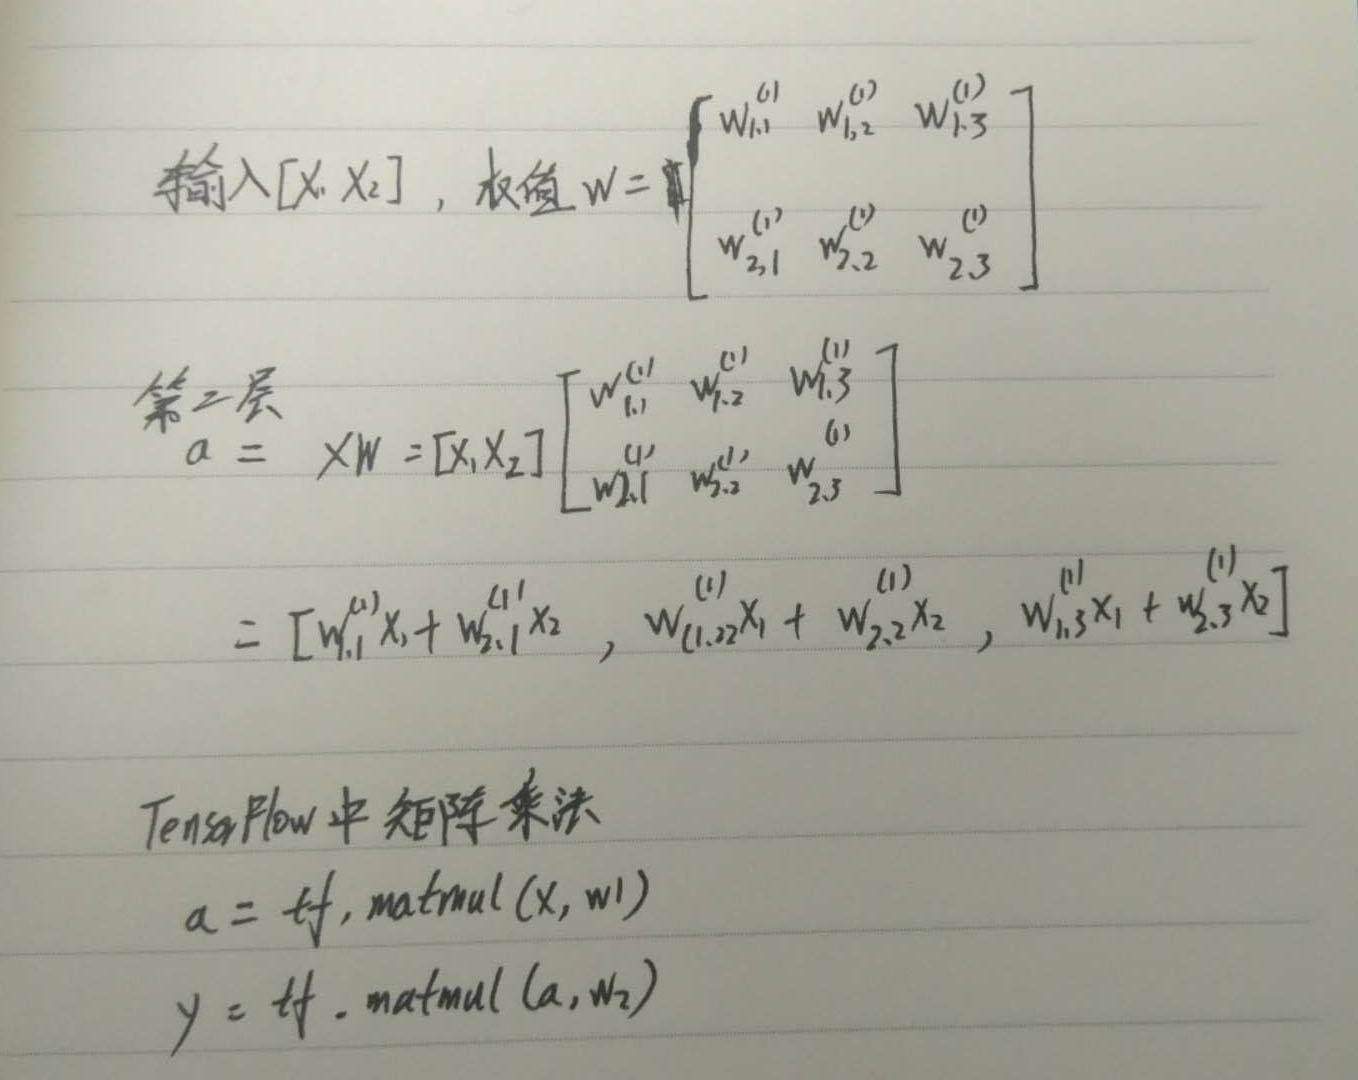 输入[X₁ X₂], 权值 W = [W₁.₁⁽¹⁾ W₁,₂⁽¹⁾ W₁.₃⁽¹⁾
W₂,₁⁽¹⁾ W₂.₂⁽¹⁾ W₂.₃⁽¹⁾]
第二层
a = XW = [X₁X₂] [W₁.₁⁽¹⁾ W₁.₂⁽¹⁾ W₁.₃⁽¹⁾
W₂.₁⁽¹⁾ W₂.₂⁽¹⁾ W₂.₃⁽¹⁾]
= [W₁.₁⁽¹⁾X₁ + W₂.₁⁽¹⁾X₂ , W₍₁.₂₂⁽¹⁾X₁ + W₂.₂⁽¹⁾X₂ , W₁.₃⁽¹⁾X₁ + W₂.₃⁽¹⁾X₂]
TensorFlow中矩阵乘法
a = tf.matmul(X, W1)
y = tf.matmul(a, W₂)